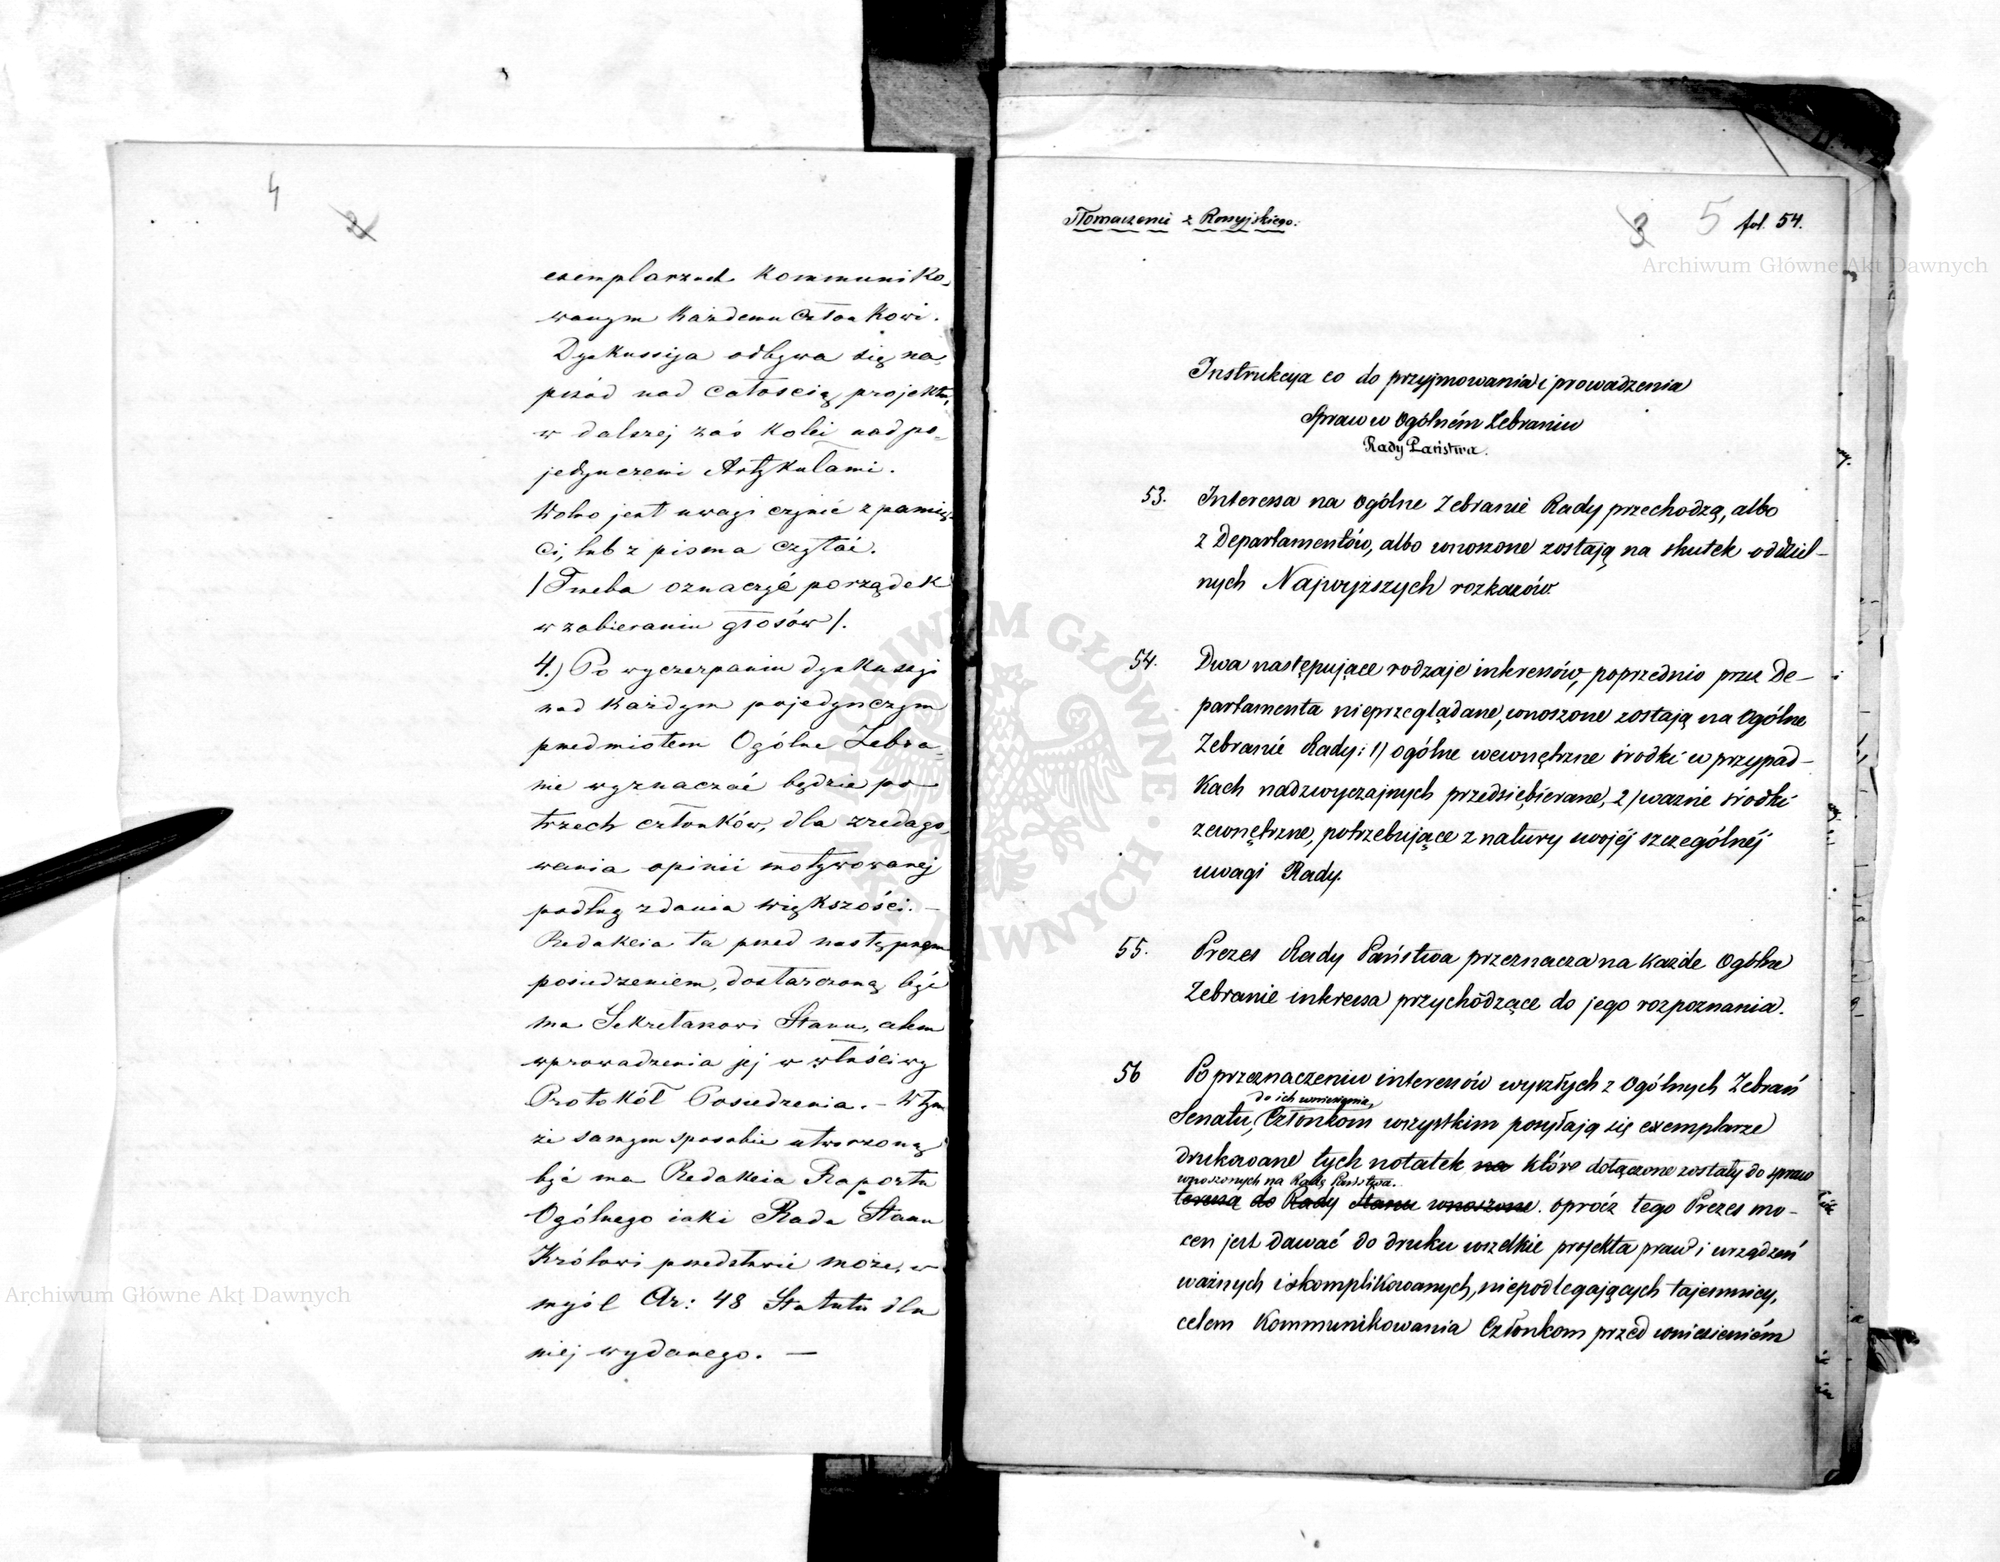 4
2
exemplarzach kommuniko-
wanym każdemu Członkowi.
Dyskussija odbywa się na-
przód nad całością projektu,
w dalszej zaś kolei nad po-
jedynczemi Artykułami.
Wolno jest uwagi czynić z pamię-
ci, lub z pisma czytać.
/Trzeba oznaczyć porządek
w zabieraniu głosów/.
4.) Po wyczerpaniu dyskussyi
nad każdym pojedynczym
przedmiotem Ogólne Zebra-
nie wyznaczać będzie po
trzech członków, dla zredago-
wania opinii motywowanej
podług zdania większości. —
Redakcia ta przed następnem
posiedzeniem, dostarczoną być
ma Sekretarzowi Stanu, celem
wprowadzenia jej w właściwy
Protokół Posiedzenia. — W tym
że samym sposobie utworzoną
być ma Redakcia Raportu
Ogólnego jaki Rada Stanu
Królowi przedstawić może, w
myśl Ar: 48 Statutu dla
niej wydanego. —
Tłomaczenie z Rossyjskiego.
3 5 fol. 54.
Instrukcya co do przyjmowania i prowadzenia
Spraw w Ogólném Zebraniu
Rady Państwa.
53. Interessa na Ogólne Zebranie Rady przechodzą, albo
z Departamentów, albo wnoszone zostają na skutek oddziel-
nych Najwyższych rozkazów.
54. Dwa następujące rodzaje interessów, poprzednio przez De-
partamenta nieprzeglądane, wnoszone zostają na Ogólne
Zebranie Rady: 1) ogólne wewnętrzne środki w przypad-
kach nadzwyczajnych przedsiębierane, 2) ważne środki
zewnętrzne, potrzebujące z natury swojéj szczególnéj
uwagi Rady.
55. Prezes Rady Państwa przeznacza na każde Ogólne
Zebranie interessa przychodzące do jego rozpoznania.
56 Po przeznaczeniu interessów wyszłych z Ogólnych Zebrań
do ich wniesienia,
Senatu, Członkom wszystkim posyłają się exemplarze
drukowane tych notatek na które dołączone zostały do spraw
wnoszonych na Radę Państwa.
teressa do Rady Stanu wnoszone. oprócz tego Prezes mo-
cen jest dawać do druku wszelkie projekta praw i urządzeń
ważnych i skomplikowanych, niepodlegających tajemnicy,
celem kommunikowania Członkom przed wniesieniém
Archiwum Główne Akt Dawnych
Archiwum Główne Akt Dawnych
ARCHIWUM GŁÓWNE AKT DAWNYCH